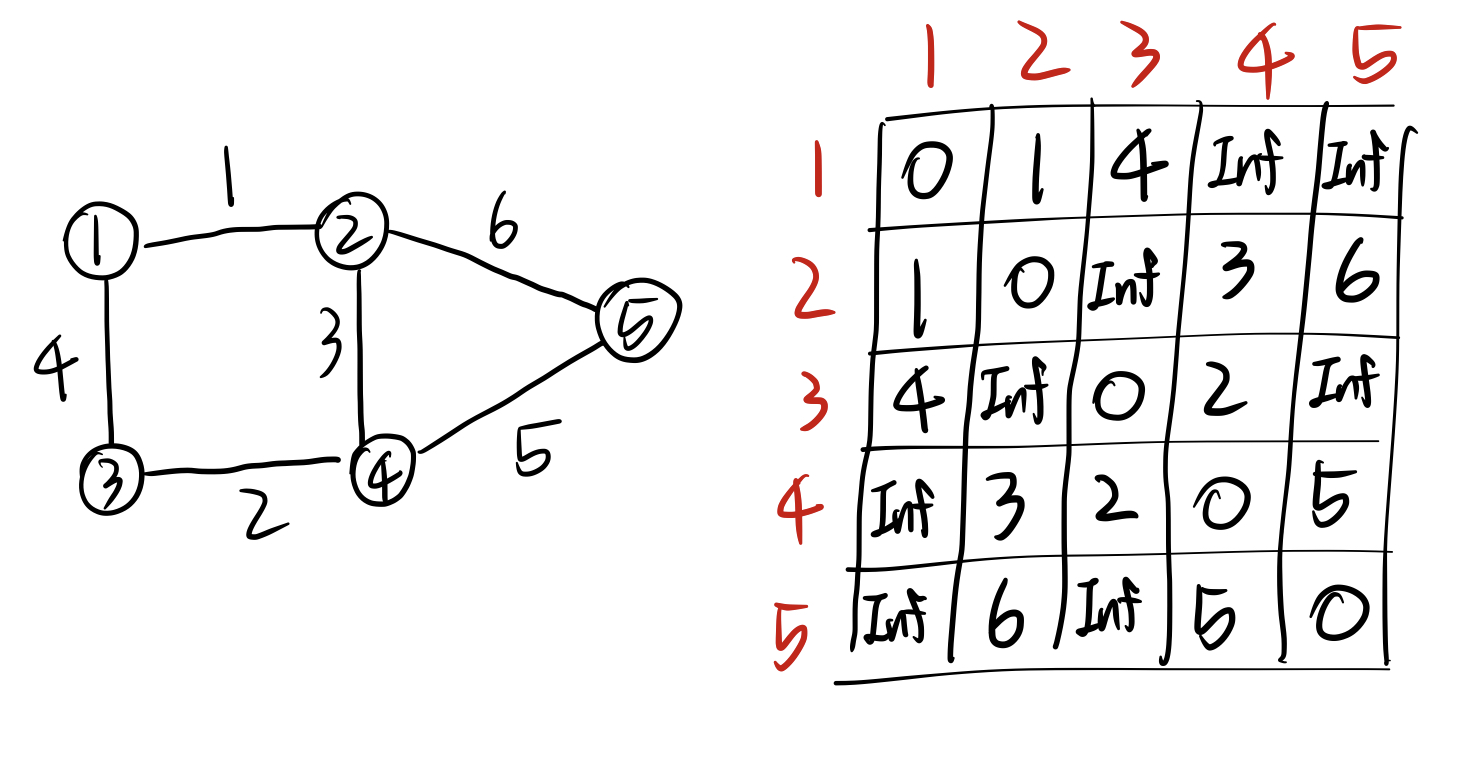 1
1
2
6
5
4
3
3
4
2
5
1 2 3 4 5
1 0 1 4 Inf Inf
2 1 0 Inf 3 6
3 4 Inf 0 2 Inf
4 Inf 3 2 0 5
5 Inf 6 Inf 5 0